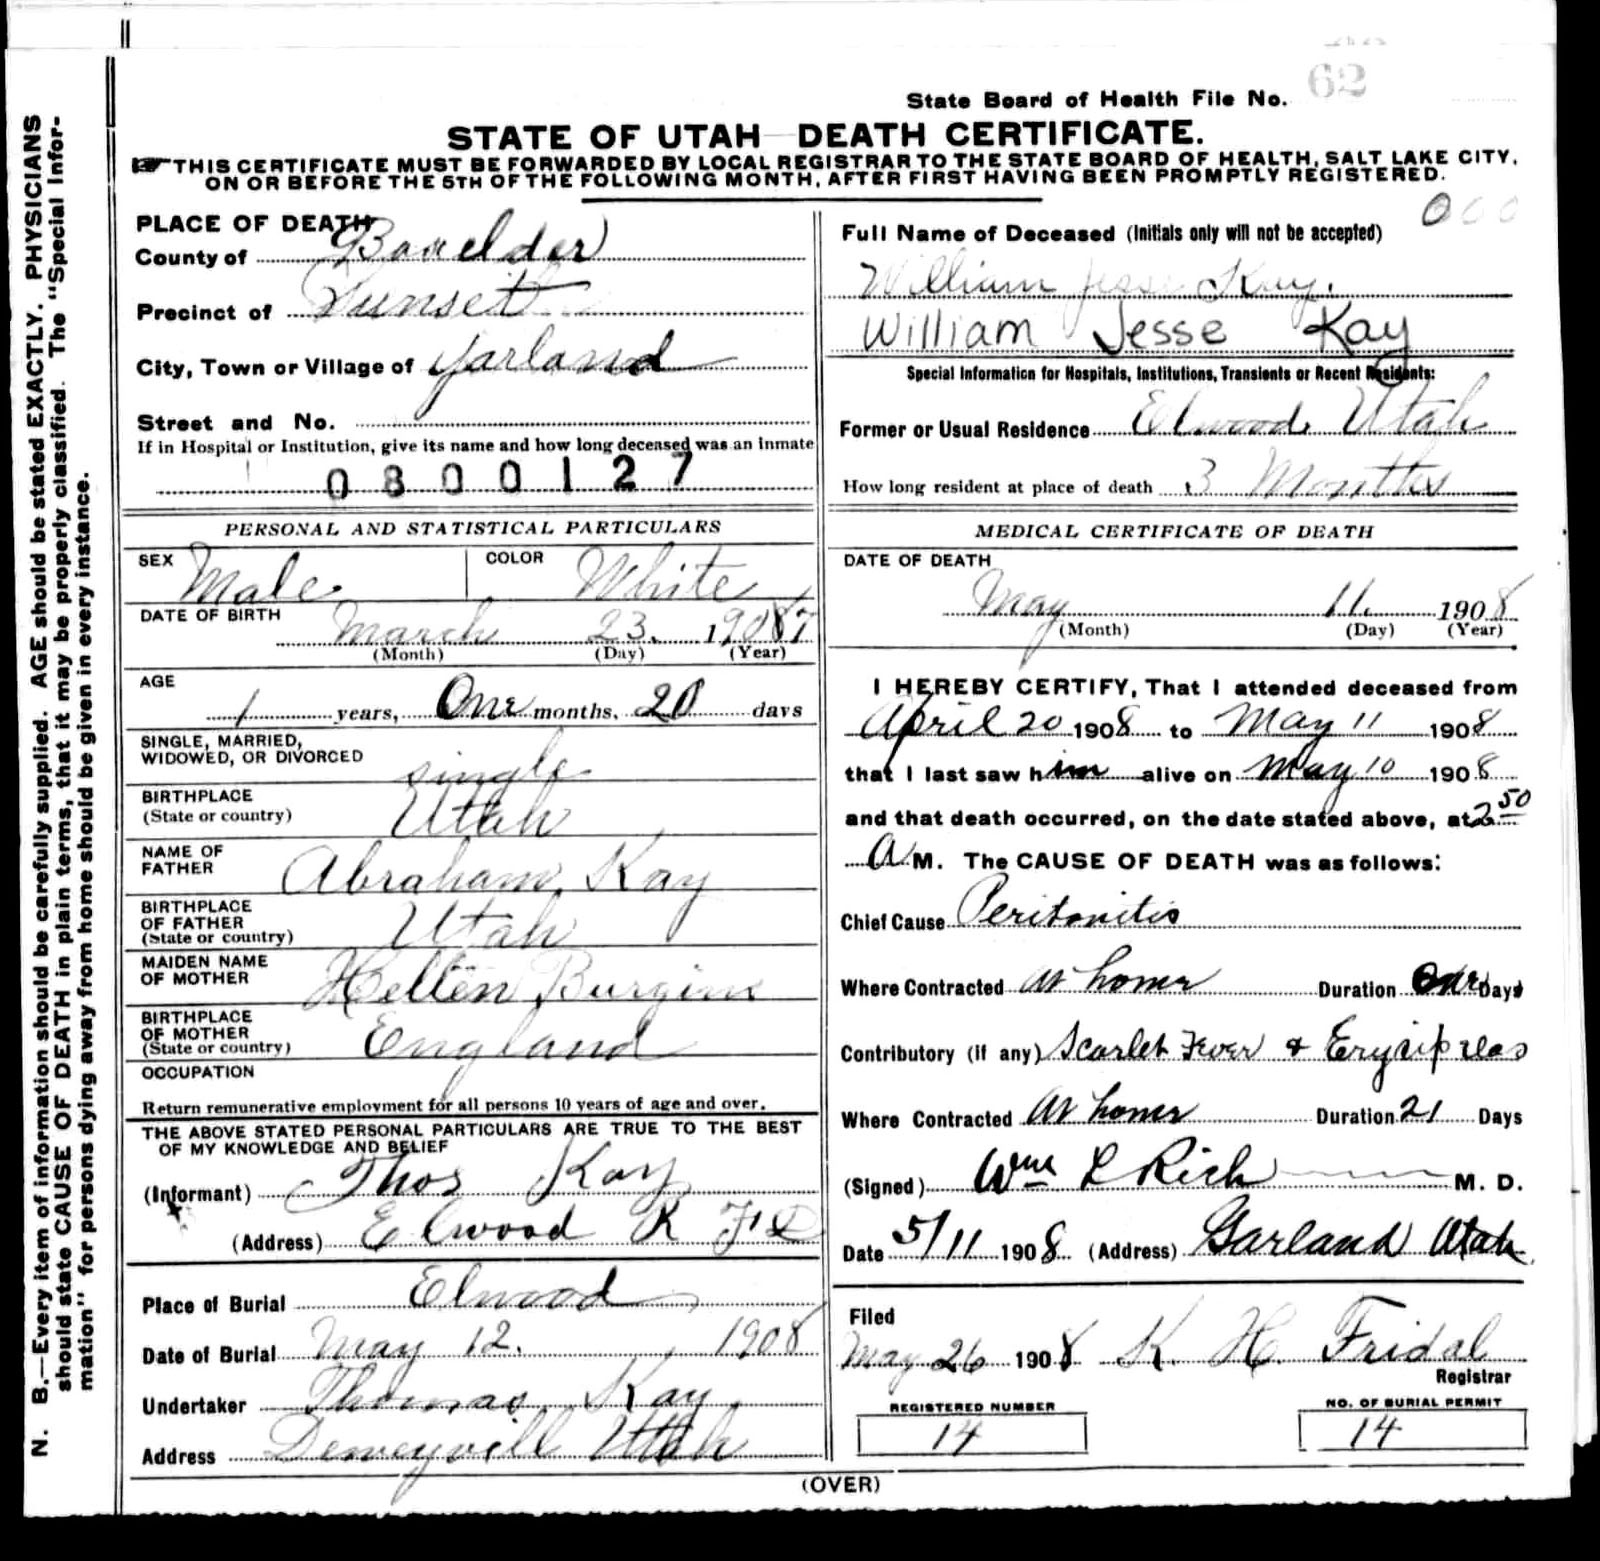 62
State Board of Health File No.
STATE OF UTAH DEATH CERTIFICATE.
THIS CERTIFICATE MUST BE FORWARDED BY LOCAL REGISTRAR TO THE STATE BOARD OF HEALTH, SALT LAKE CITY,
ON OR BEFORE THE 5TH OF THE FOLLOWING MONTH, AFTER FIRST HAVING BEEN PROMPTLY REGISTERED.
N. B.—Every item of information should be carefully supplied. AGE should be stated EXACTLY. PHYSICIANS
should state CAUSE OF DEATH in plain terms, that it may be properly classified. The "Special Infor-
mation" for persons dying away from home should be given in every instance.
PLACE OF DEATH
County of Boxelder
Precinct of Sunset
City, Town or Village of Garland
Street and No.
If in Hospital or Institution, give its name and how long deceased was an inmate
0800127
PERSONAL AND STATISTICAL PARTICULARS
SEX Male COLOR White
DATE OF BIRTH March 23. 1907
(Month) (Day) (Year)
AGE
1 years, One months, 20 days
SINGLE, MARRIED,
WIDOWED, OR DIVORCED single
BIRTHPLACE
(State or country) Utah
NAME OF
FATHER Abraham Kay
BIRTHPLACE
OF FATHER
(State or country) Utah
MAIDEN NAME
OF MOTHER Hellen Burgin
BIRTHPLACE
OF MOTHER
(State or country) England
OCCUPATION
Return remunerative employment for all persons 10 years of age and over.
THE ABOVE STATED PERSONAL PARTICULARS ARE TRUE TO THE BEST
OF MY KNOWLEDGE AND BELIEF
(Informant) Thos Kay
(Address) Elwood R F D
Place of Burial Elwood
Date of Burial May 12. 1908
Undertaker Thomas Kay
Address Deweyvill Utah
000
Full Name of Deceased (Initials only will not be accepted)
William Jesse Kay.
William Jesse Kay
Special Information for Hospitals, Institutions, Transients or Recent Residents:
Former or Usual Residence Elwood Utah
How long resident at place of death 3 Months
MEDICAL CERTIFICATE OF DEATH
DATE OF DEATH
May 11. 1908
(Month) (Day) (Year)
I HEREBY CERTIFY, That I attended deceased from
April 20 1908 to May 11 1908
that I last saw him alive on May 10 1908
and that death occurred, on the date stated above, at 2 50
A M. The CAUSE OF DEATH was as follows:
Chief Cause Peritonitis
Where Contracted At home Duration One Days
Contributory (if any) Scarlet Fever & Erysipelas
Where Contracted At home Duration 21 Days
(Signed) Wm L Rich M. D.
Date 5/11 1908 (Address) Garland Utah
Filed
May 26 1908 K. H. Fridal
Registrar
REGISTERED NUMBER NO. OF BURIAL PERMIT
14 14
(OVER)